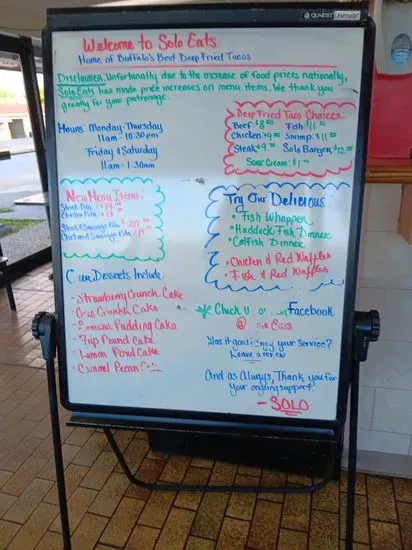 QUARTET
Welcome to Solo Eats
Home of Buffalo's Best Deep Fried Tacos
Disclaimer: Unfortunately due to the increase of food prices nationally,
Solo Eats has made price increases on menu items. We thank you
greatly for your patronage.
Hours: Monday-Thursday
11am - 10:30pm
Friday & Saturday
11am - 1:30am
Deep Fried Taco Choices:
Beef: $8.00 Fish $11.00
Chicken: $9.00 Shrimp: $11.00
Steak $9.50 Solo Banger $12.00
Sour Cream: $1.00
New Menu Items:
Steak Pita
Chicken Pita
Steak & Sausage Pita
Chicken & Sausage Pita
Try Our Delicious:
• Fish Whopper
• Haddock Fish Dinner
• Catfish Dinner
• Chicken & Red Waffles
• Fish & Red Waffles
Our Desserts Include:
• Strawberry Crunch Cake
Crunch Cake
Pudding Cake
7up Pound Cake
Lemon Pound Cake
• Caramel Pecan
Check Facebook
@ Eats
Was it good? Enjoy your Service?
Leave a review
And as Always, Thank you for
your ongoing support!
- SOLO